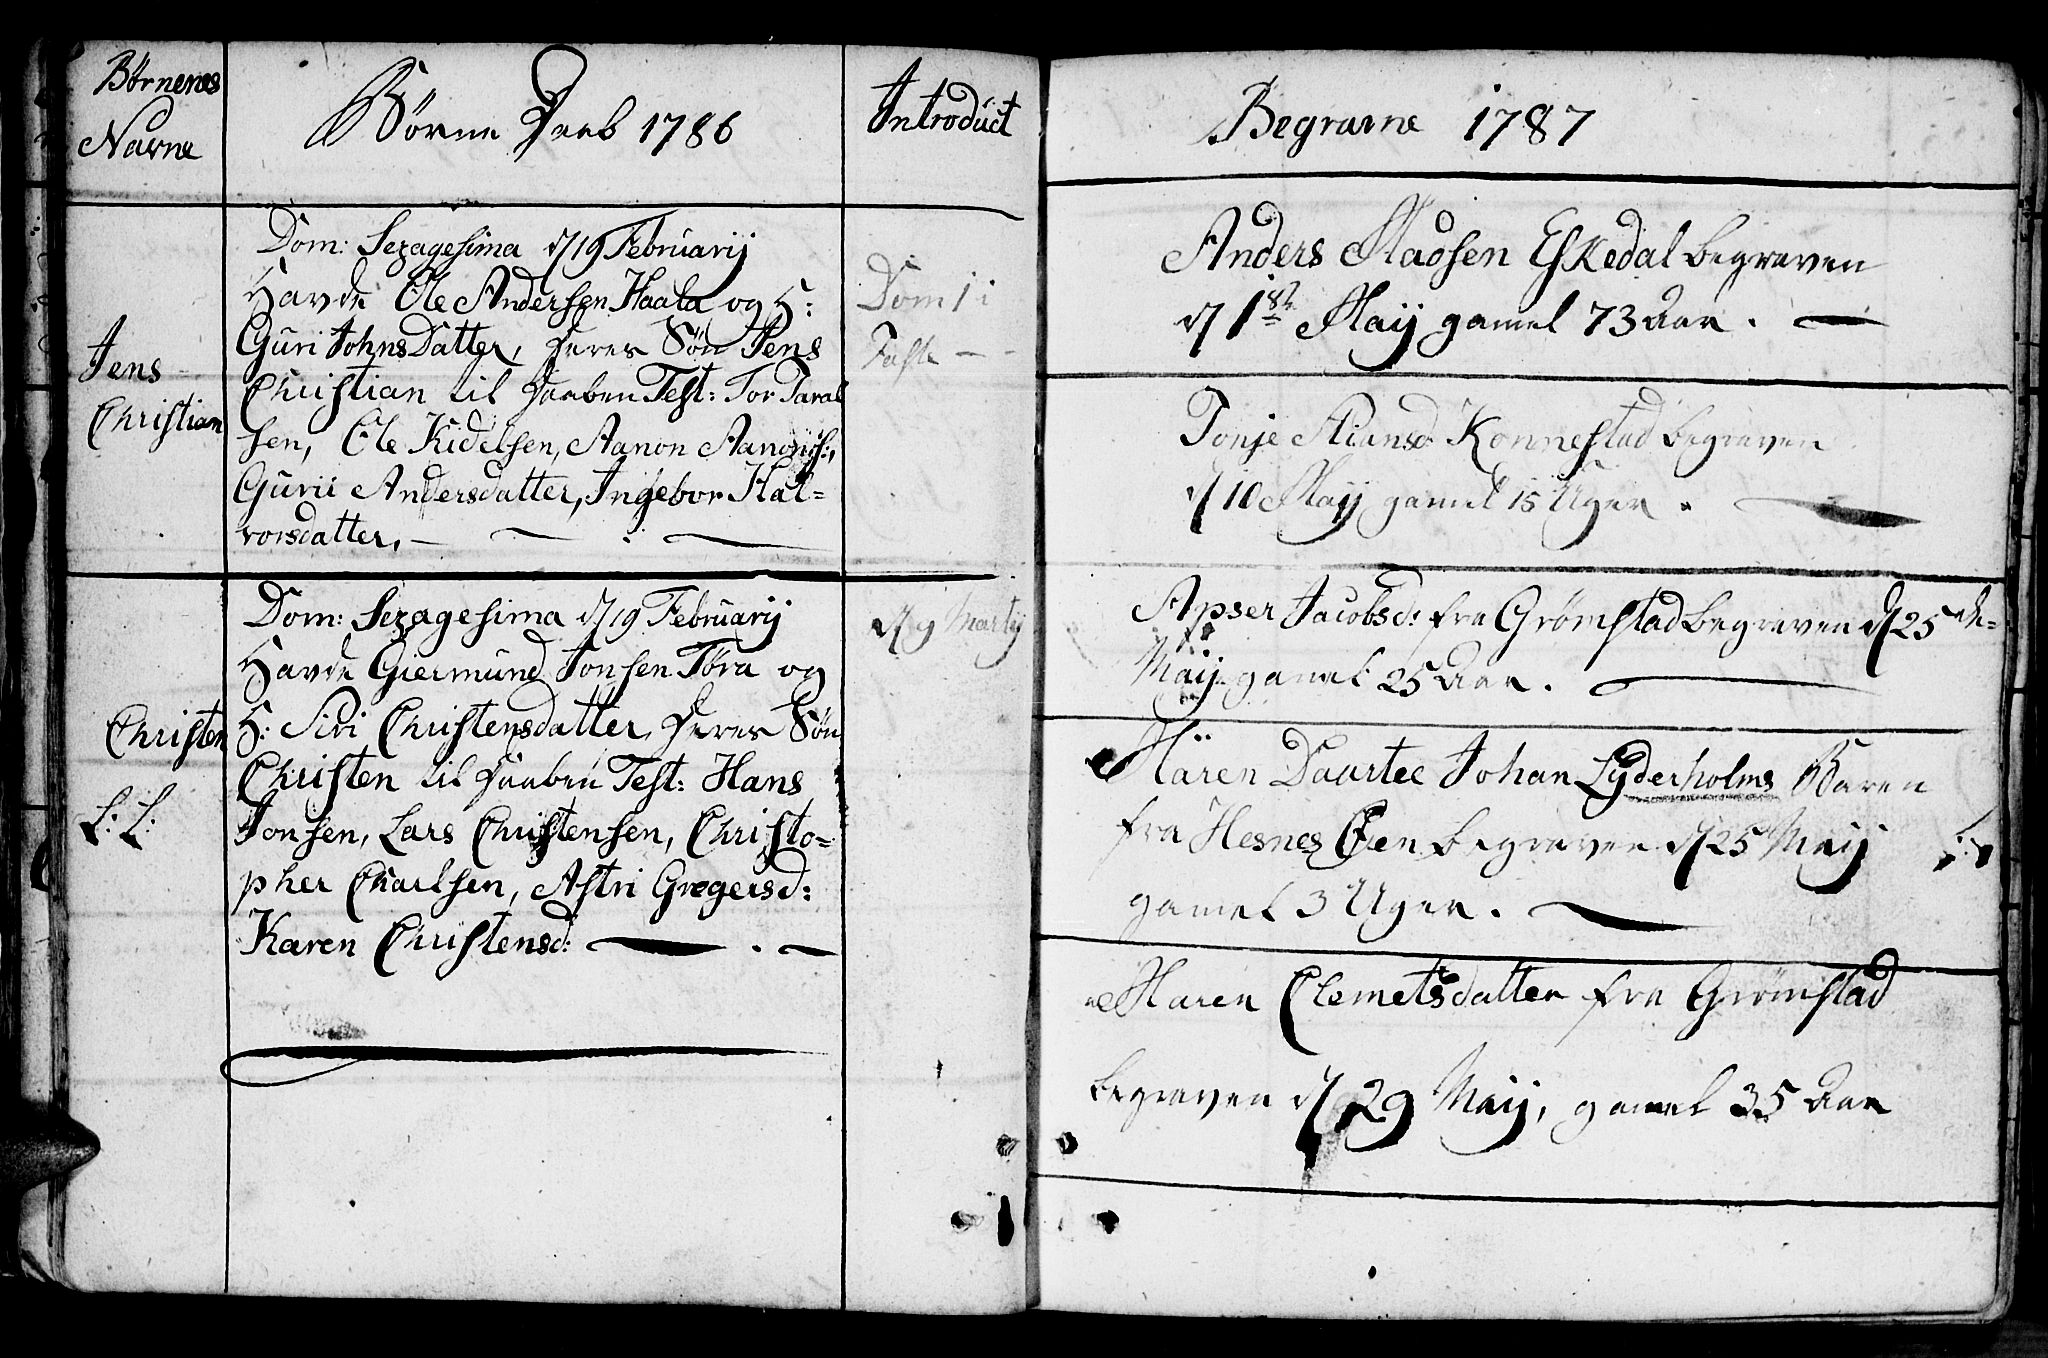 Børnenes
Navne
Børne Daab 1786
Introduct
Jens
Christian
Dom: Sexagesima d 19 Februarij
Havde Ole Andersen Haala og H:
Guri JohnsDatter, Deres Søn Jens
Christian til Daaben Test: Tor Taral
sen, Ole Kidelsen, Aanon Aanons:,
Gurii Andersdatter, Ingebor Hal=
vorsdatter.
Dom 1 i
Faste
Christen
L: L:
Dom: Sexagesima d 19 Februarij
Havde Giermund Jonsen Tøra og
H: Sivi Christensdatter, Deres Søn
Christen til Daaben Test: Hans
Jonsen, Lars Christensen, Christo=
pher Charlsen, Astri Gregersd:
Karen Christensd:
d 9 Martij
Begravne 1787
Anders Madsen Eskedal begraven
d 1 Maij gamel 73 Aar.
Tonje Konnestad begraven
d 10 Maij gamel 15 Uger.
Apser Jacobsd: fra Grømstad begraven d 25
Maij gamel 25 Aar.
Maren Daartee Johan Lyderholms Baren
fra Hesnes Øen begraven d 25 Maij
gamel 3 Uger.
Maren Clemetsdatter fra Grømstad
begraven d 29 Maij, gamel 35 Aar